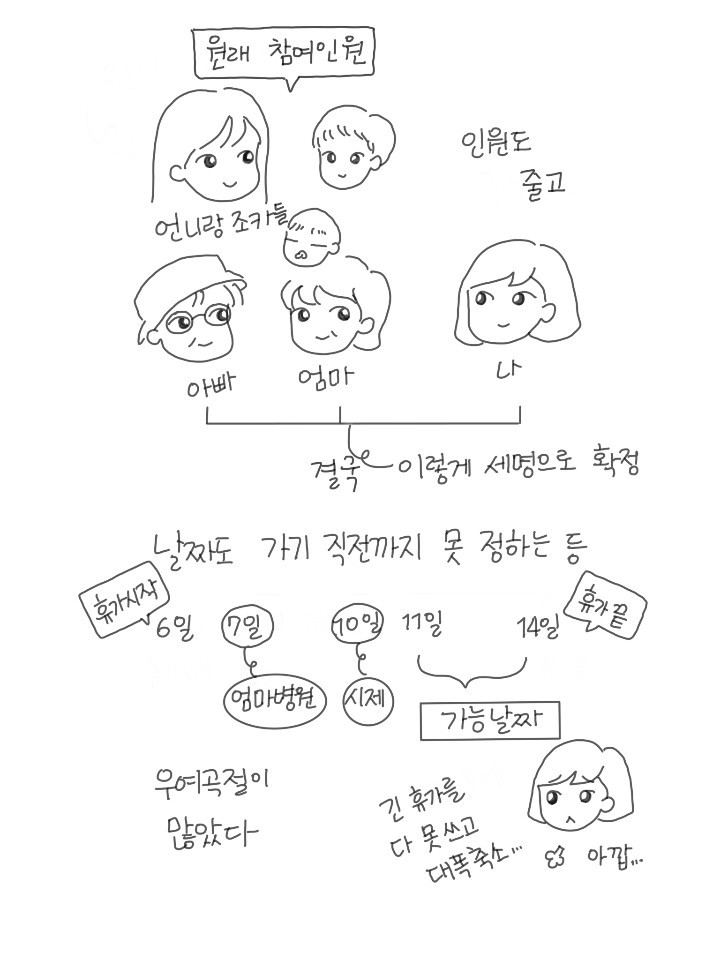 원래 참여인원
인원도
줄고
언니랑 조카들
아빠
엄마
나
결국
이렇게 세명으로 확정
날짜도 가기 직전까지 못 정하는 등
휴가시작
휴가 끝
6일 7일 10일 11일 14일
엄마병원
시제
가능날짜
우여곡절이
많았다
긴 휴가를
다 못 쓰고
대폭축소...
아깝...